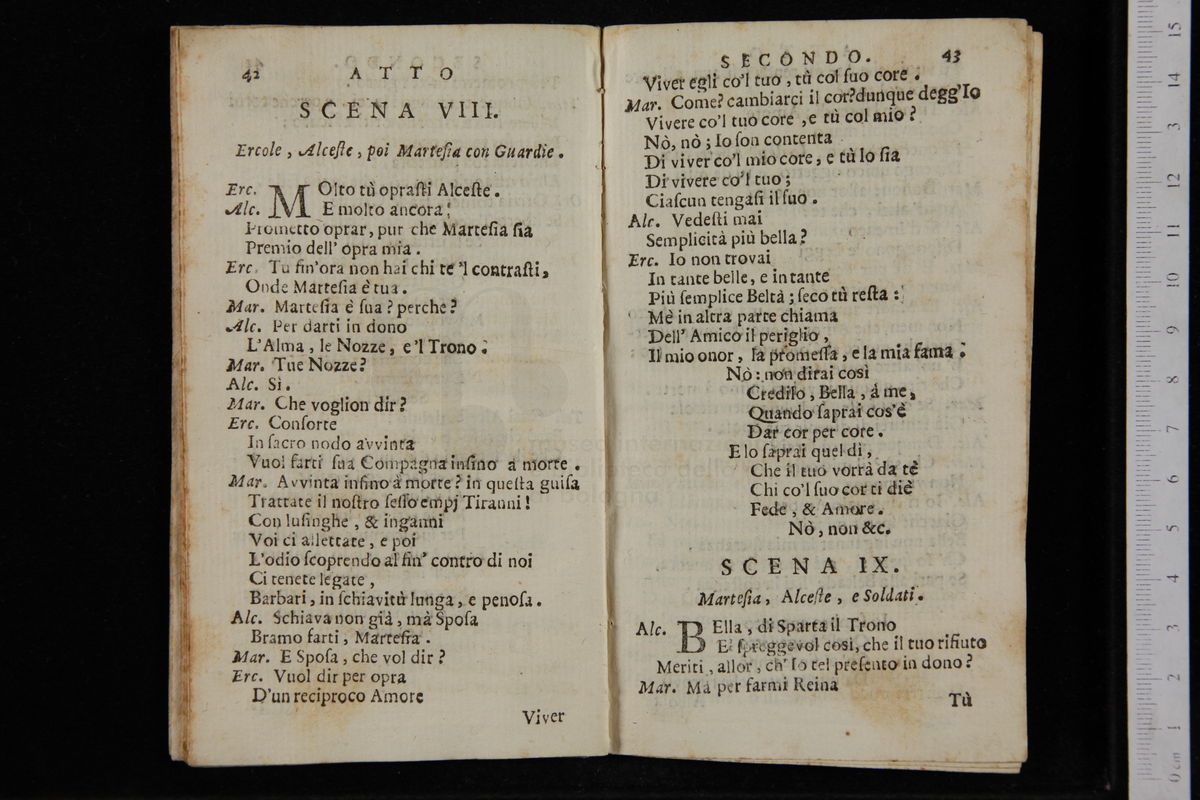 42 ATTO
SCENA VIII.
Ercole, Alceste, poi Martesia con Guardie.
Erc. MOlto tù oprasti Alceste.
Alc. E molto ancora;
Prometto oprar, pur che Martesia sia
Premio dell' opra mia.
Erc. Tu fin'ora non hai chi te 'l contrasti,
Onde Martesia è tua.
Mar. Martesia è sua? perche?
Alc. Per darti in dono
L'Alma, le Nozze, e 'l Trono.
Mar. Tue Nozze?
Alc. Sì.
Mar. Che voglion dir?
Erc. Consorte
In sacro nodo avvinta
Vuol farti sua Compagna insino a morte.
Mar. Avvinta insino à morte? in questa guisa
Trattate il nostro sesso empj Tiranni!
Con lusinghe, & inganni
Voi ci allettate, e poi
L'odio scoprendo al fin' contro di noi
Ci tenete legate,
Barbari, in schiavitù lunga, e penosa.
Alc. Schiava non già, mà Sposa
Bramo farti, Martesia.
Mar. E Sposa, che vol dir?
Erc. Vuol dir per opra
D'un reciproco Amore
Viver
SECONDO. 43
Viver egli co'l tuo, tù col suo core.
Mar. Come? cambiarci il cor? dunque degg'Io
Vivere co'l tuo core, e tù col mio?
Nò, nò; Io son contenta
Di viver co'l mio core, e tù lo sia
Di vivere co'l tuo;
Ciascun tengasi il suo.
Alc. Vedesti mai
Semplicità più bella?
Erc. Io non trovai
In tante belle, e in tante
Più semplice Beltà; seco tù resta:
Mè in altra parte chiama
Dell' Amico il periglio,
Il mio onor, la promessa, e la mia fama.
Nò: non dirai così
Credilo, Bella, à me,
Quando saprai cos'è
Dar cor per core.
E lo saprai quel dì,
Che il tuo vorrà da tè
Chi co'l suo cor ti diè
Fede, & Amore.
Nò, non &c.
SCENA IX.
Martesia, Alceste, e Soldati.
Alc. BElla, di Sparta il Trono
E' spreggevol così, che il tuo rifiuto
Meriti, allor, ch' Io tel presento in dono?
Mar. Mà per farmi Reina
Tù